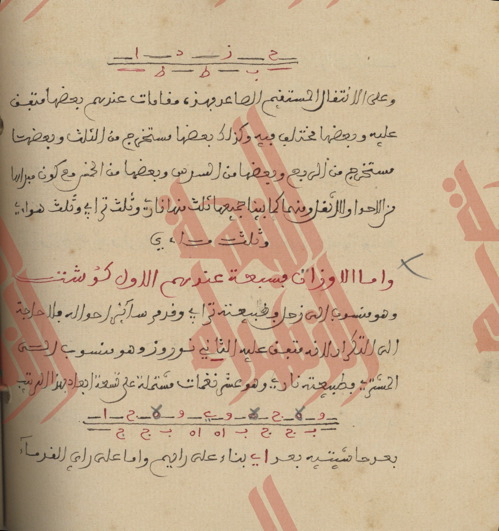 ح ز د ا
ب ط ط
وعلى الانتقال المستقيم الصاعد فهذه مقامات عندهم بعضها متفق
عليه وبعضها مختلف فيه وكذلك بعضها مستخرج من الثلث وبعضها
مستخرج من الربع وبعضها من السدس وبعضها من الخمس مع كون مبدإها
من الاحد والاثقل ومنها كما بينا جميعها ثلث منها نارية وثلث ترابي وثلث هوائي
وثلث مائي
واما الاوزان فسبعة عندهم الاول كوشت
وهو منسوب الى زحل وطبيعته ترابي وقد مر سائر احواله فلا حاجة
الى التكرار لانه متفق عليه الثاني نوروز وهو منسوب الى
المشتري وطبيعته نارية وهو عشر نغمات مشتملة على تسعة ابعاد بهذا الترتيب
بعد حاشيتيه بعد اب بناء على رايهم واما على راي القدماء